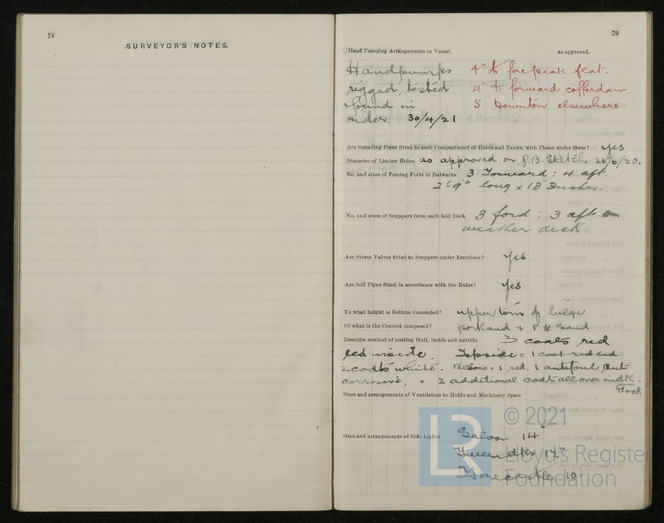 78
SURVEYOR'S NOTES.
79
Hand Pumping Arrangements in Vessel. as approved.
Handpumps 4" to fore peak flat.
rigged, tested 4" to forward cofferdam
& found in 5 Downton elsewhere
order. 30/4/21
Are Sounding Pipes fitted to each Compartment of Holds and Tanks, with Plates under them? Yes
Diameter of Limber Holes as approved on P.B. Sketch 26/6/20.
No. and sizes of Freeing Ports in Bulwarks 3 Forward : 4 aft.
2'9" long x 18" inches.
No. and sizes of Scuppers from each laid Deck 3 ford : 3 aft on
weather deck
Are Storm Valves fitted to Scuppers under Erections? Yes
Are Soil Pipes fitted in accordance with the Rules? Yes
To what height is Bottom Cemented? upper turn of bilge
Of what is the Cement composed? portland + sand
Describe method of coating Hull, inside and outside 3 coats red
led inside. Topside = 1 coat red
2 coats white. Below = 1 red, 1 antifoul, Anti
corrosive, 2 additional coats all over in dk.
Dock
Sizes and arrangements of Ventilators to Holds and Machinery Space
Sizes and arrangements of Side Lights Saloon 14"
Tweendks 12"
Forecastle 10
© 2021
LR
Lloyd's Register
Foundation